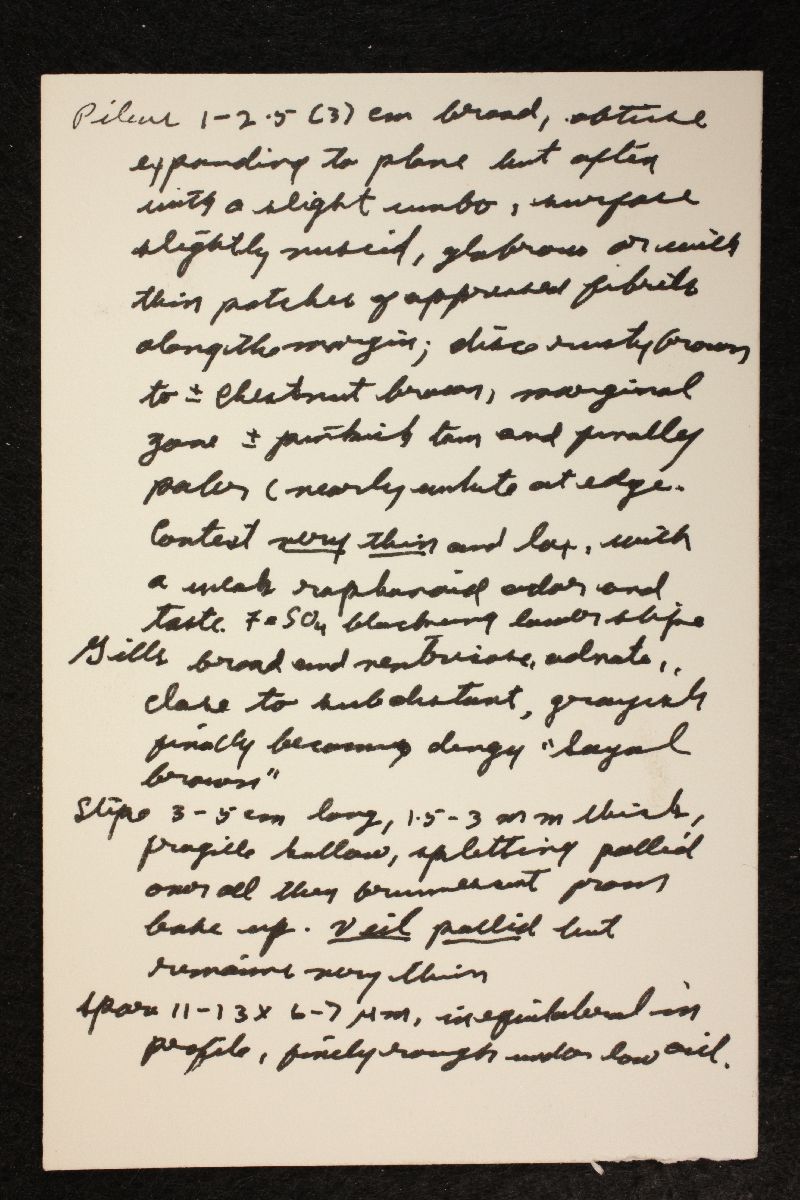 Pileus 1-2.5 (3) cm broad, obtuse
expanding to plane but often
with a slight umbo, surface
slightly viscid, glabrous or with
thin patches of appressed fibrils
along the margin; disc rusty brown
to ± chestnut brown, marginal
zone ± pinkish tan and finally
paler (nearly white at edge.
Context very thin and lax, with
a weak raphanoid odor and
taste. FeSO4 blackening lower stipe
Gills broad and ventricose, adnate,,
close to subdistant, grayish
finally becoming dingy "sayal
brown"
Stipe 3-5 cm long, 1.5-3 mm thick,
fragile hollow, splitting pallid
over all then brunnescent from
base up. Veil pallid but
remains very thin
Spores 11-13 x 6-7 µm, inequilateral in
profile, finely rough under low oil.